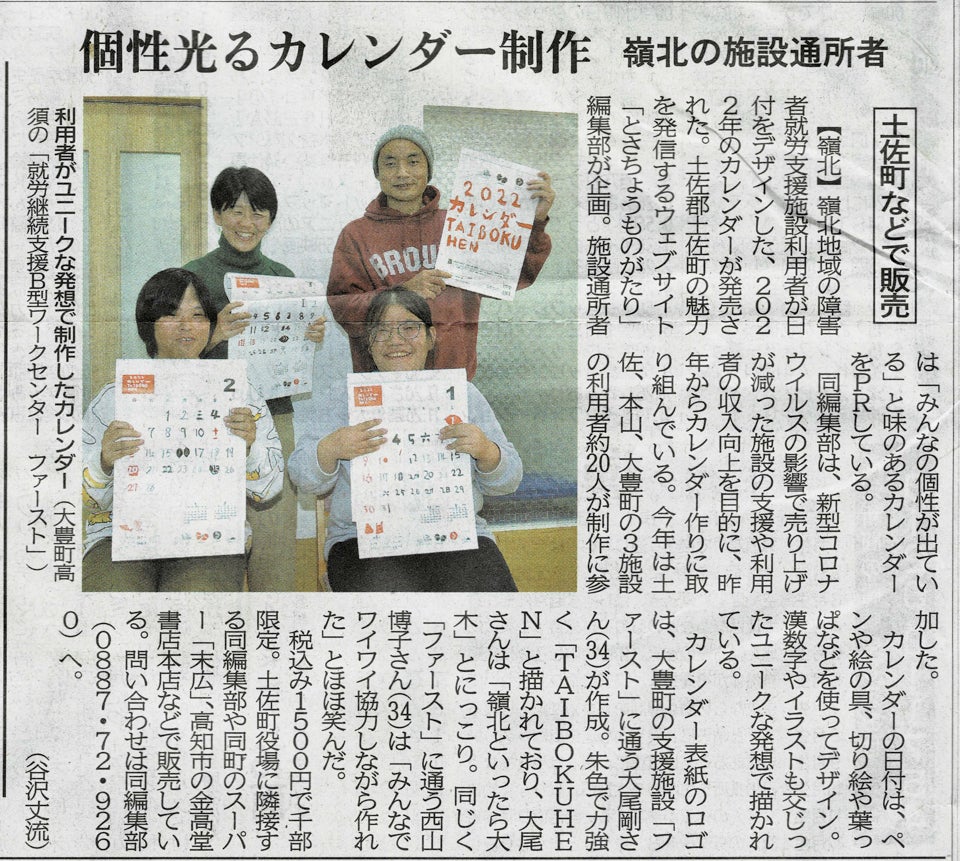 個性光るカレンダー制作 嶺北の施設通所者
土佐町などで販売
【嶺北】嶺北地域の障害
者就労支援施設利用者が日
付をデザインした、202
2年のカレンダーが発売さ
れた。土佐郡土佐町の魅力
を発信するウェブサイト
「とさちょうものがたり」
編集部が企画。施設通所者
は「みんなの個性が出てい
る」と味のあるカレンダー
をPRしている。
同編集部は、新型コロナ
ウイルスの影響で売り上げ
が減った施設の支援や利用
者の収入向上を目的に、昨
年からカレンダー作りに取
り組んでいる。今年は土
佐、本山、大豊町の3施設
の利用者約20人が制作に参
加した。
カレンダーの日付は、ペ
ンや絵の具、切り絵や葉っ
ぱなどを使ってデザイン。
漢数字やイラストも交じっ
たユニークな発想で描かれ
ている。
カレンダー表紙のロゴ
は、大豊町の支援施設「フ
ァースト」に通う大尾剛さ
ん(34)が作成。朱色で力強
く「TAIBOKUHE
N」と描かれており、大尾
さんは「嶺北といったら大
木」とにっこり。同じく
「ファースト」に通う西山
博子さん(34)は「みんなで
ワイワイ協力しながら作れ
た」とほほ笑んだ。
税込み1500円で千部
限定。土佐町役場に隣接す
る同編集部や同町のスーパ
ー「末広」、高知市の金高堂
書店本店などで販売してい
る。問い合わせは同編集部
(0887・72・926
0)へ。
(谷沢丈流)
利用者がユニークな発想で制作したカレンダー(大豊町高
須の「就労継続支援B型ワークセンター ファースト」)
2022
カレンダー
TAIBOKU
HEN
BROU
2
1